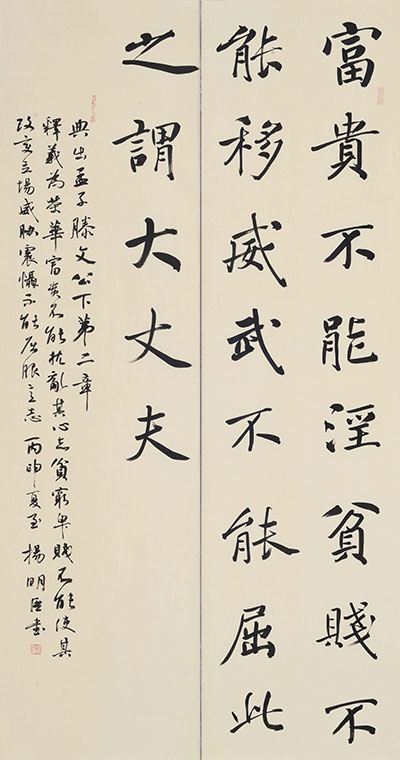 富貴不能淫貧賤不
能移威武不能屈此
之謂大丈夫
典出孟子滕文公下第二章
釋義為榮華富貴不能扰亂其心志貧窮卑賤不能使其
改变立場威胁震慑不能屈服志丙申夏至楊明臣書